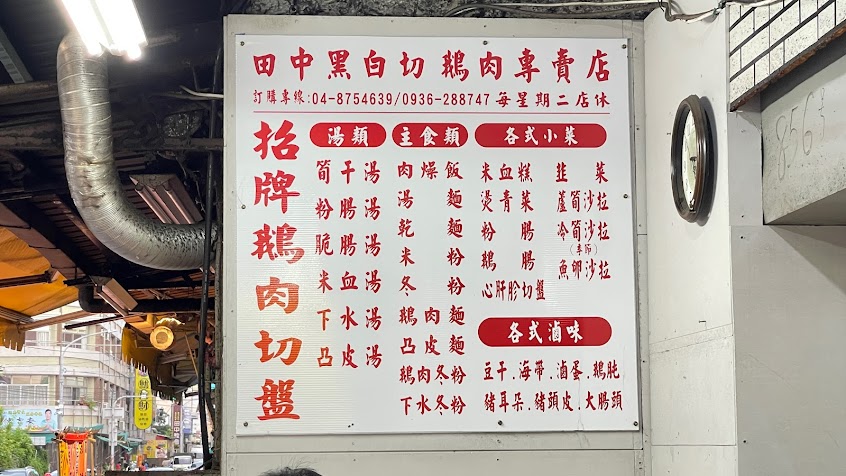 田中黑白切鵝肉專賣店
訂購專線:04-8754639/0936-288747 每星期二店休
招牌鵝肉切盤
湯類
筍干湯
粉腸湯
脆腸湯
米血湯
下水湯
凸皮湯
主食類
肉燥飯
湯麵
乾麵
米粉
冬粉
鵝肉麵
凸皮麵
鵝肉冬粉
下水冬粉
各式小菜
米血糕 韭菜
燙青菜 蘆筍沙拉
粉腸 冷筍沙拉
(季節)
鵝腸 魚卵沙拉
心肝胗切盤
各式滷味
豆干.海帶.滷蛋.鵝胗
豬耳朵.豬頭皮.大腸頭